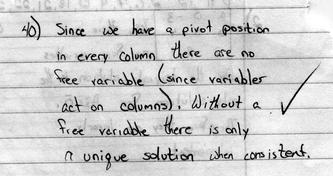 40) Since we have a pivot position
in every column there are no
free variable (since variables
act on columns). Without a
free variable there is only
a unique solution when consistent.